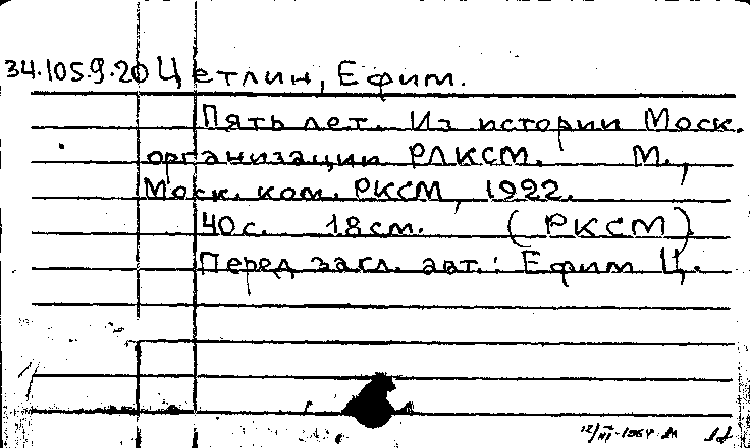 34.105.9.20 Цетлин, Ефим.
Пять лет. Из истории Моск.
организации РЛКСМ. М.,
Моск. ком. РКСМ, 1922.
40 с. 18 см. (РКСМ).
Перед загл. авт.: Ефим Ц.